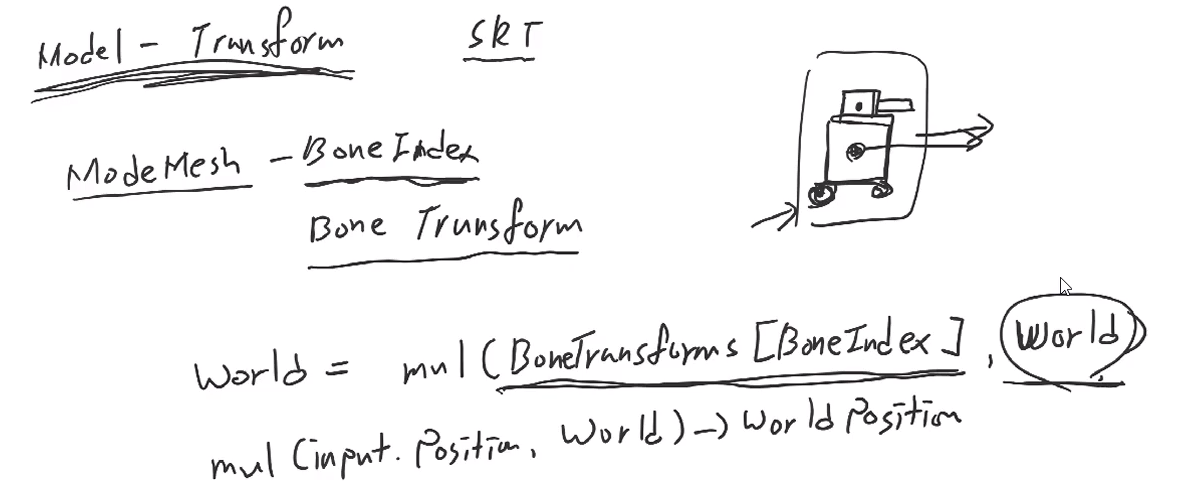 Model - Transform SRT
ModeMesh - BoneIndex
Bone Transform
World = mul (BoneTransforms [BoneIndex], World)
mul (input. Position, World) → World Position